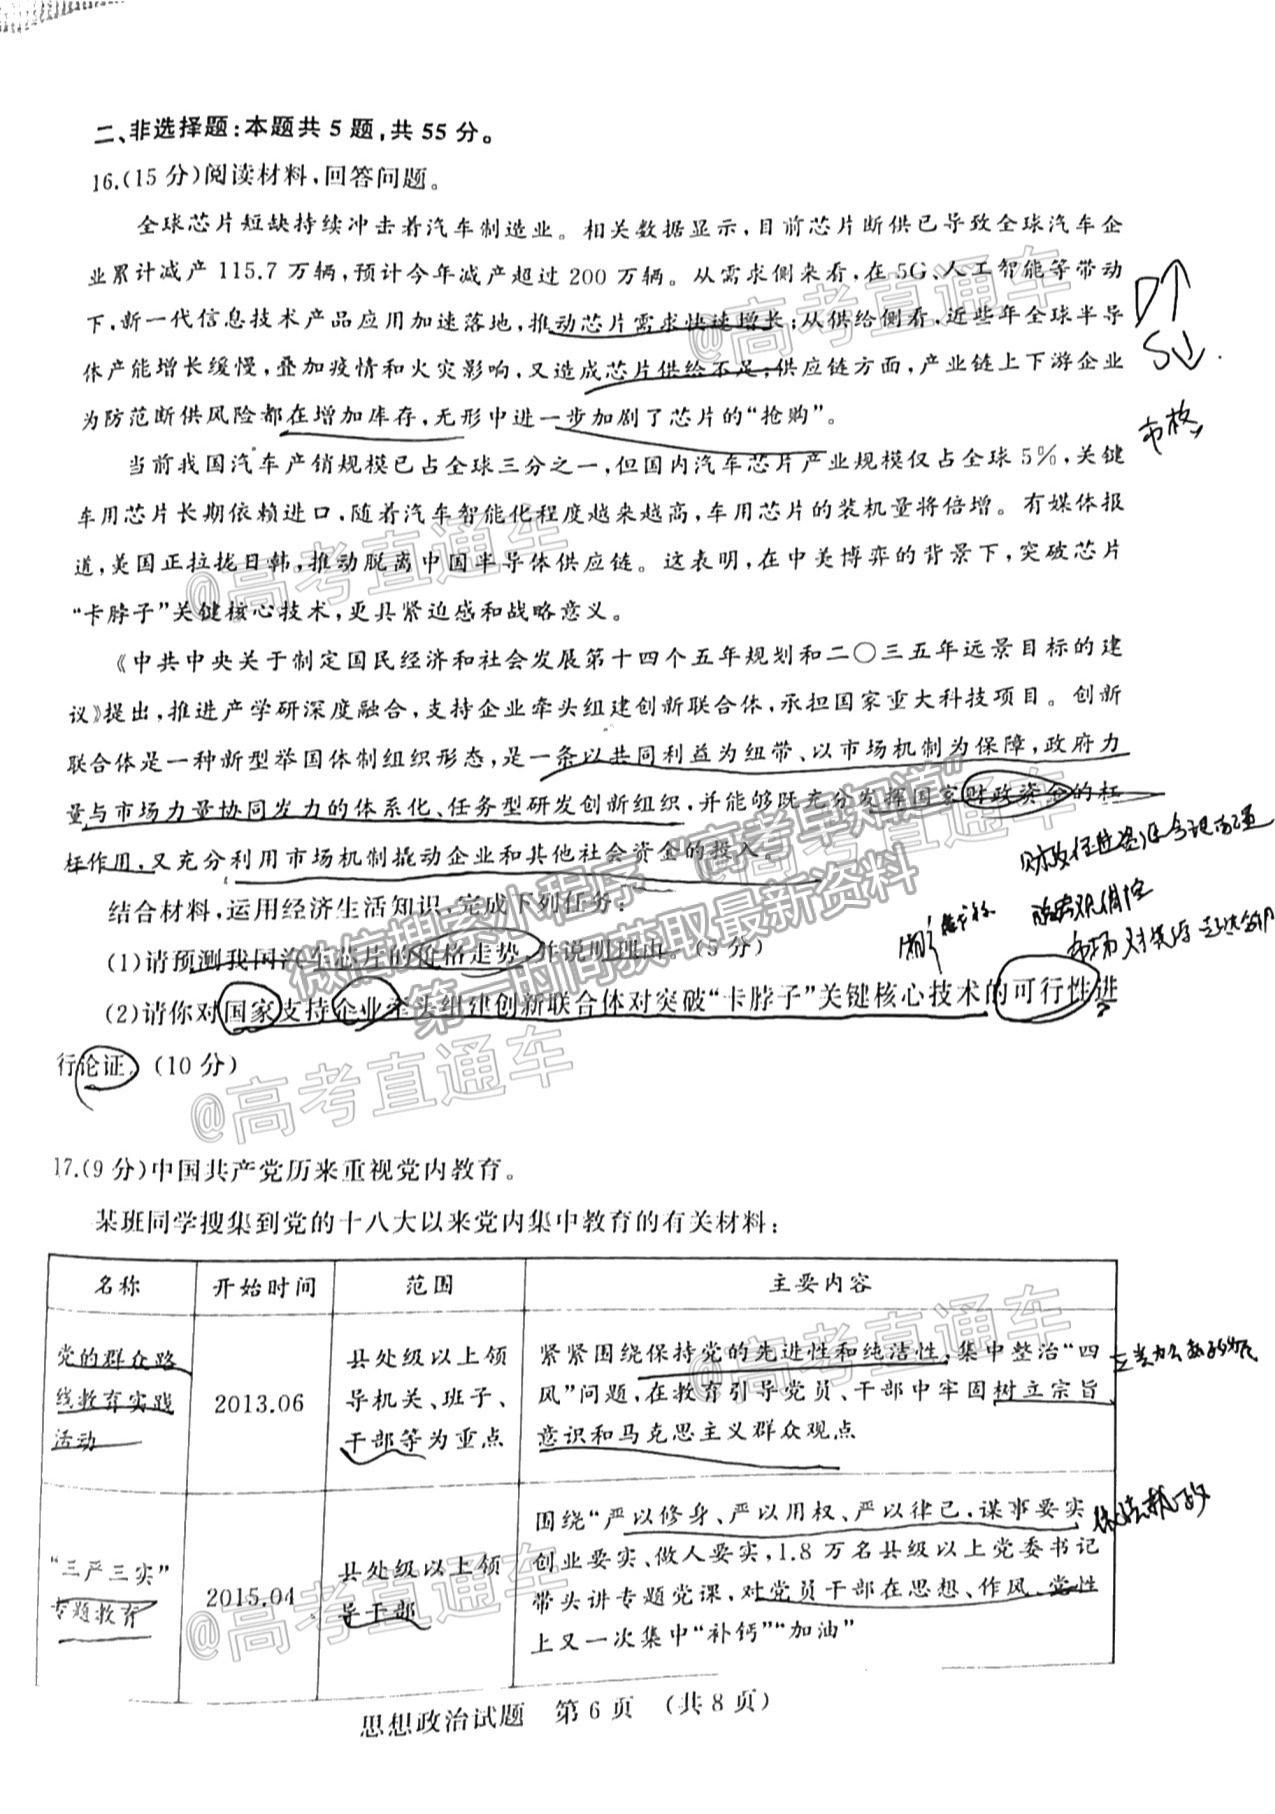 二、非选择题:本题共5题,共55分。
16.(15分)阅读材料,回答问题。
全球芯片短缺持续冲击着汽车制造业。相关数据显示,目前芯片断供已导致全球汽车企
业累计减产115.7万辆,预计今年减产超过200万辆。从需求侧来看,在5G、人工智能等带动
下,新一代信息技术产品应用加速落地,推动芯片需求快速增长;从供给侧看,近些年全球半导
体产能增长缓慢,叠加疫情和火灾影响,又造成芯片供给不足;供应链方面,产业链上下游企业
为防范断供风险都在增加库存,无形中进一步加剧了芯片的“抢购”。
D↑
S↓
价格
当前我国汽车产销规模已占全球三分之一,但国内汽车芯片产业规模仅占全球5%,关键
车用芯片长期依赖进口,随着汽车智能化程度越来越高,车用芯片的装机量将倍增。有媒体报
道,美国正拉拢日韩,推动脱离中国半导体供应链。这表明,在中美博弈的背景下,突破芯片
“卡脖子”关键核心技术,更具紧迫感和战略意义。
《中共中央关于制定国民经济和社会发展第十四个五年规划和二〇三五年远景目标的建
议》提出,推进产学研深度融合,支持企业牵头组建创新联合体,承担国家重大科技项目。创新
联合体是一种新型举国体制组织形态,是一条以共同利益为纽带、以市场机制为保障,政府力
量与市场力量协同发力的体系化、任务型研发创新组织,并能够既充分发挥国家财政资金的杠
杆作用,又充分利用市场机制撬动企业和其他社会资金的投入。
结合材料,运用经济生活知识,完成下列任务:
(1)请预测我国汽车芯片的价格走势,并说明理由。(5分)
(2)请你对国家支持企业牵头组建创新联合体对突破“卡脖子”关键核心技术的可行性进
行论证。(10分)
17.(9分)中国共产党历来重视党内教育。
某班同学搜集到党的十八大以来党内集中教育的有关材料:
名称 开始时间 范围 主要内容
党的群众路
线教育实践
活动
2013.06
县处级以上领
导机关、班子、
干部等为重点
紧紧围绕保持党的先进性和纯洁性,集中整治“四
风”问题,在教育引导党员、干部中牢固树立宗旨
意识和马克思主义群众观点
“三严三实”
专题教育
2015.04
县处级以上领
导干部
围绕“严以修身、严以用权、严以律己,谋事要实、
创业要实、做人要实,1.8万名县级以上党委书记
带头讲专题党课,对党员干部在思想、作风、党性
上又一次集中“补钙”“加油”
依法执政
思想政治试题 第6页 (共8页)
@高考直通车
@高考直通车
@高考直通车
@高考直通车
@高考直通车
@高考直通车
微信搜索小程序“高考早知道”
第一时间获取最新资料